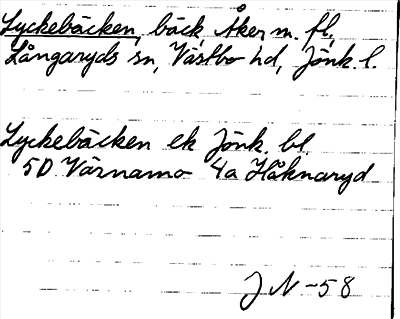 Lyckebäcken, bäck, Åker m. fl.,
Långaryds sn, Västbo hd, Jönk. l.
Lyckebäcken ek Jönk. bl.
5D Värnamo 4a Håknaryd
J N -58